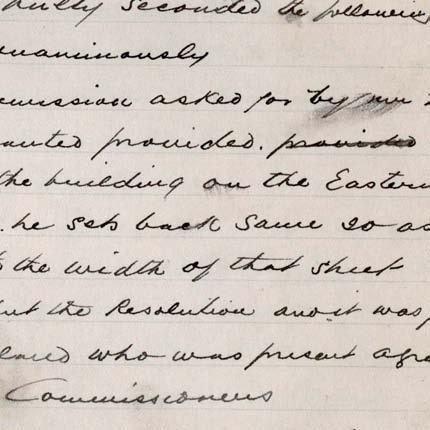 seconded the following
unanimously
permission asked for by
provided. provided
the building on the Eastern
he sets back same so as
the width of that street
the Resolution and it was
who was present agre
Commissioners